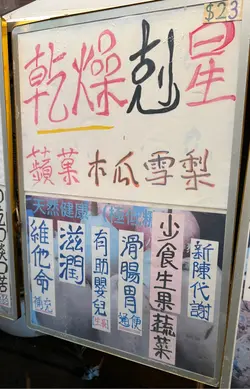 $23
乾燥剋星
蘋菓木瓜雪梨
天然健康
維他命
補充
滋潤
有助嬰兒
滑腸胃
通便
少食生果蔬菜
新陳代謝